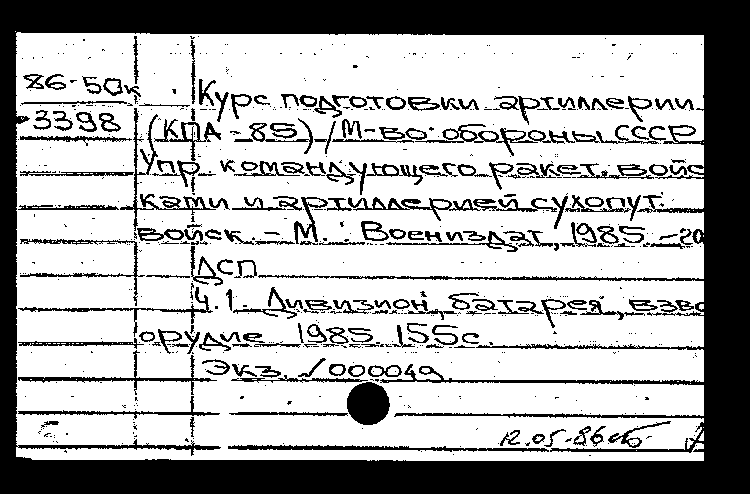 86-5Дк
3398
Курс подготовки артиллерии
(КПА-85) / М-во обороны СССР
Упр. командующего ракет. войс
ками и артиллерией сухопут.
войск. - М.: Воениздат, 1985. -
ДСП
Ч.1. Дивизион, батарея, взво
орудие 1985 155с.
Экз. √000049.
12.05.86